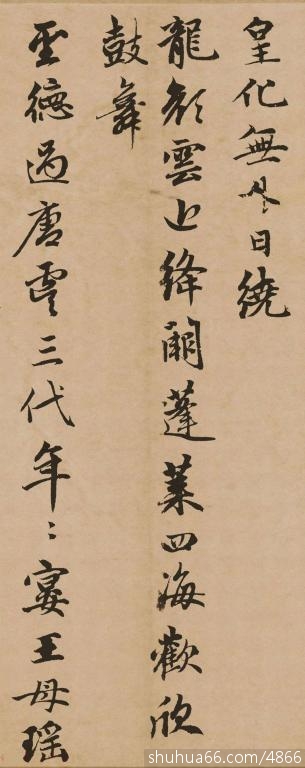 皇化無冬日繞
龍顏雲上絳闕蓬萊四海歡欣
鼓舞
聖德過唐虞三代年〻宴王母瑤
shuhua66.com/4866